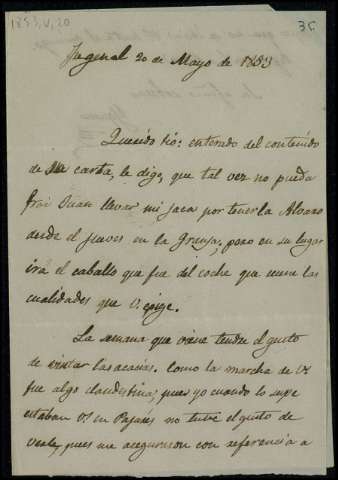 1853, V, 20
3C
Fregenal 20 de Mayo de 1853
Querido tio: enterado del contenido
de su carta, le digo, que tal vez no pueda
frai Juan llevar mi jaca por tenerla Alvaro
desde el jueves en la Granja, pero en su lugar
irá el caballo que fue del coche que reune las
cualidades que V. exige.
La semana que viene tendre el gusto
de visitar las acacias. Como la marcha de Vs
fue algo clandestina, pues yo cuando lo supe
estaban Vs en Pajares no tube el gusto de
verle, pues me aseguraron con referencia a